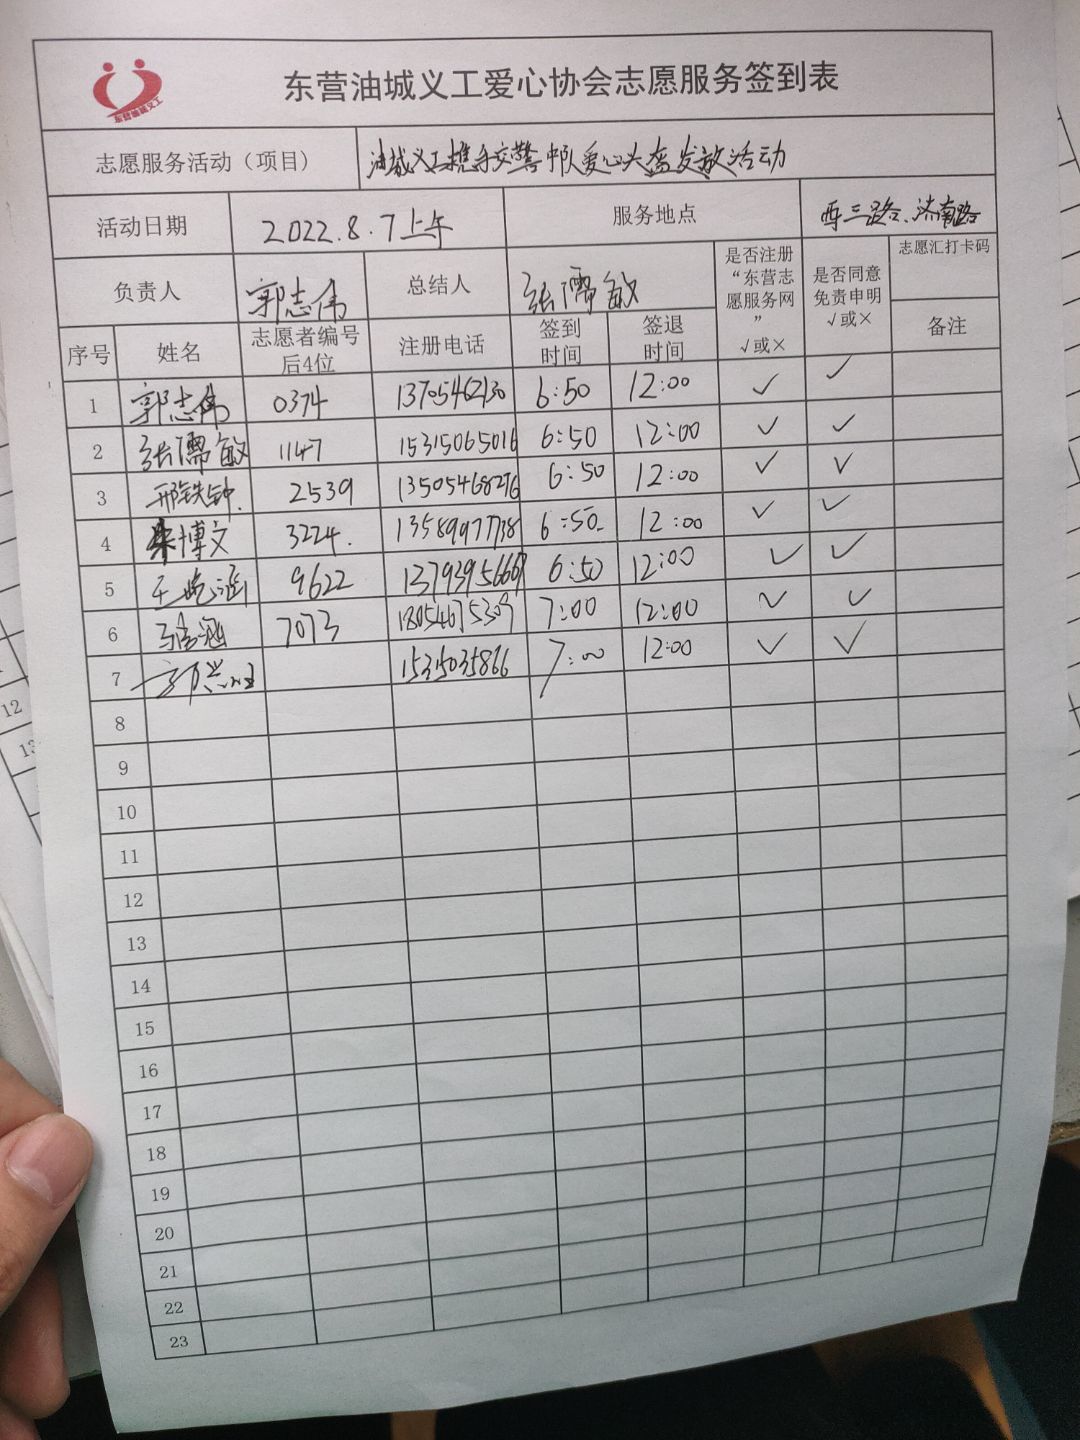 东营油城义工
东营油城义工爱心协会志愿服务签到表
志愿服务活动（项目） 油城义工携手交警中队爱心头盔发放活动
活动日期 2022.8.7上午 服务地点 西三路、济南路
负责人 郭志伟 总结人 张濡敏 是否注册“东营志愿服务网” √或× 是否同意免责申明 √或× 志愿汇打卡码
序号 姓名 志愿者编号后4位 注册电话 签到时间 签退时间 备注
1 郭志伟 0374 13705462130 6:50 12:00 √ √
2 张濡敏 1147 15315065016 6:50 12:00 √ √
3 邢铁钟 2539 13505468276 6:50 12:00 √ √
4 朱博文 3224. 13589977738 6:50 12:00 √ √
5 9622 13793956667 6:50 12:00 √ √
6 7073 18054675309 7:00 12:00 √ √
7 15315035866 7:00 12:00 √ √
8
9
10
11
12
13
14
15
16
17
18
19
20
21
22
23
12
13